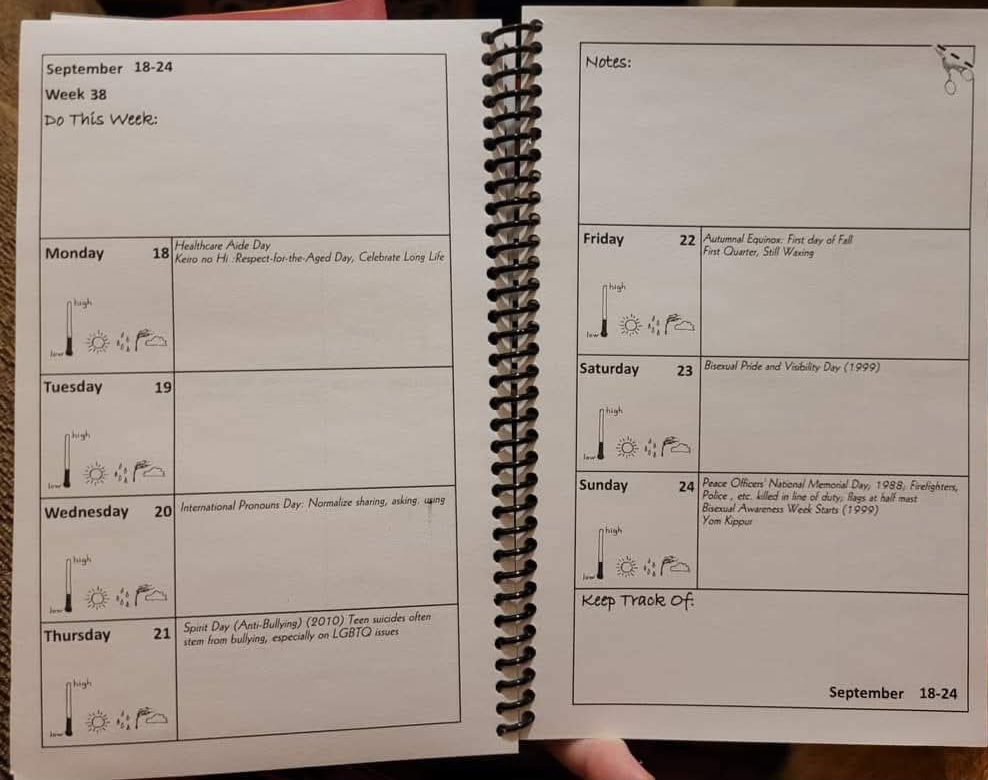 September 18-24
Week 38
Do This Week:
Monday 18
Healthcare Aide Day
Keiro no Hi :Respect-for-the-Aged Day, Celebrate Long Life
high
low
Tuesday 19
high
low
Wednesday 20
International Pronouns Day: Normalize sharing, asking, using
high
low
Thursday 21
Spirit Day (Anti-Bullying) (2010) Teen suicides often
stem from bullying, especially on LGBTQ issues
high
low
Notes:
Friday 22
Autumnal Equinox: First day of Fall
First Quarter, Still Waxing
high
low
Saturday 23
Bisexual Pride and Visibility Day (1999)
high
low
Sunday 24
Peace Officers' National Memorial Day; 1988; Firefighters,
Police , etc. killed in line of duty; flags at half mast
Bisexual Awareness Week Starts (1999)
Yom Kippur
high
low
Keep Track Of:
September 18-24